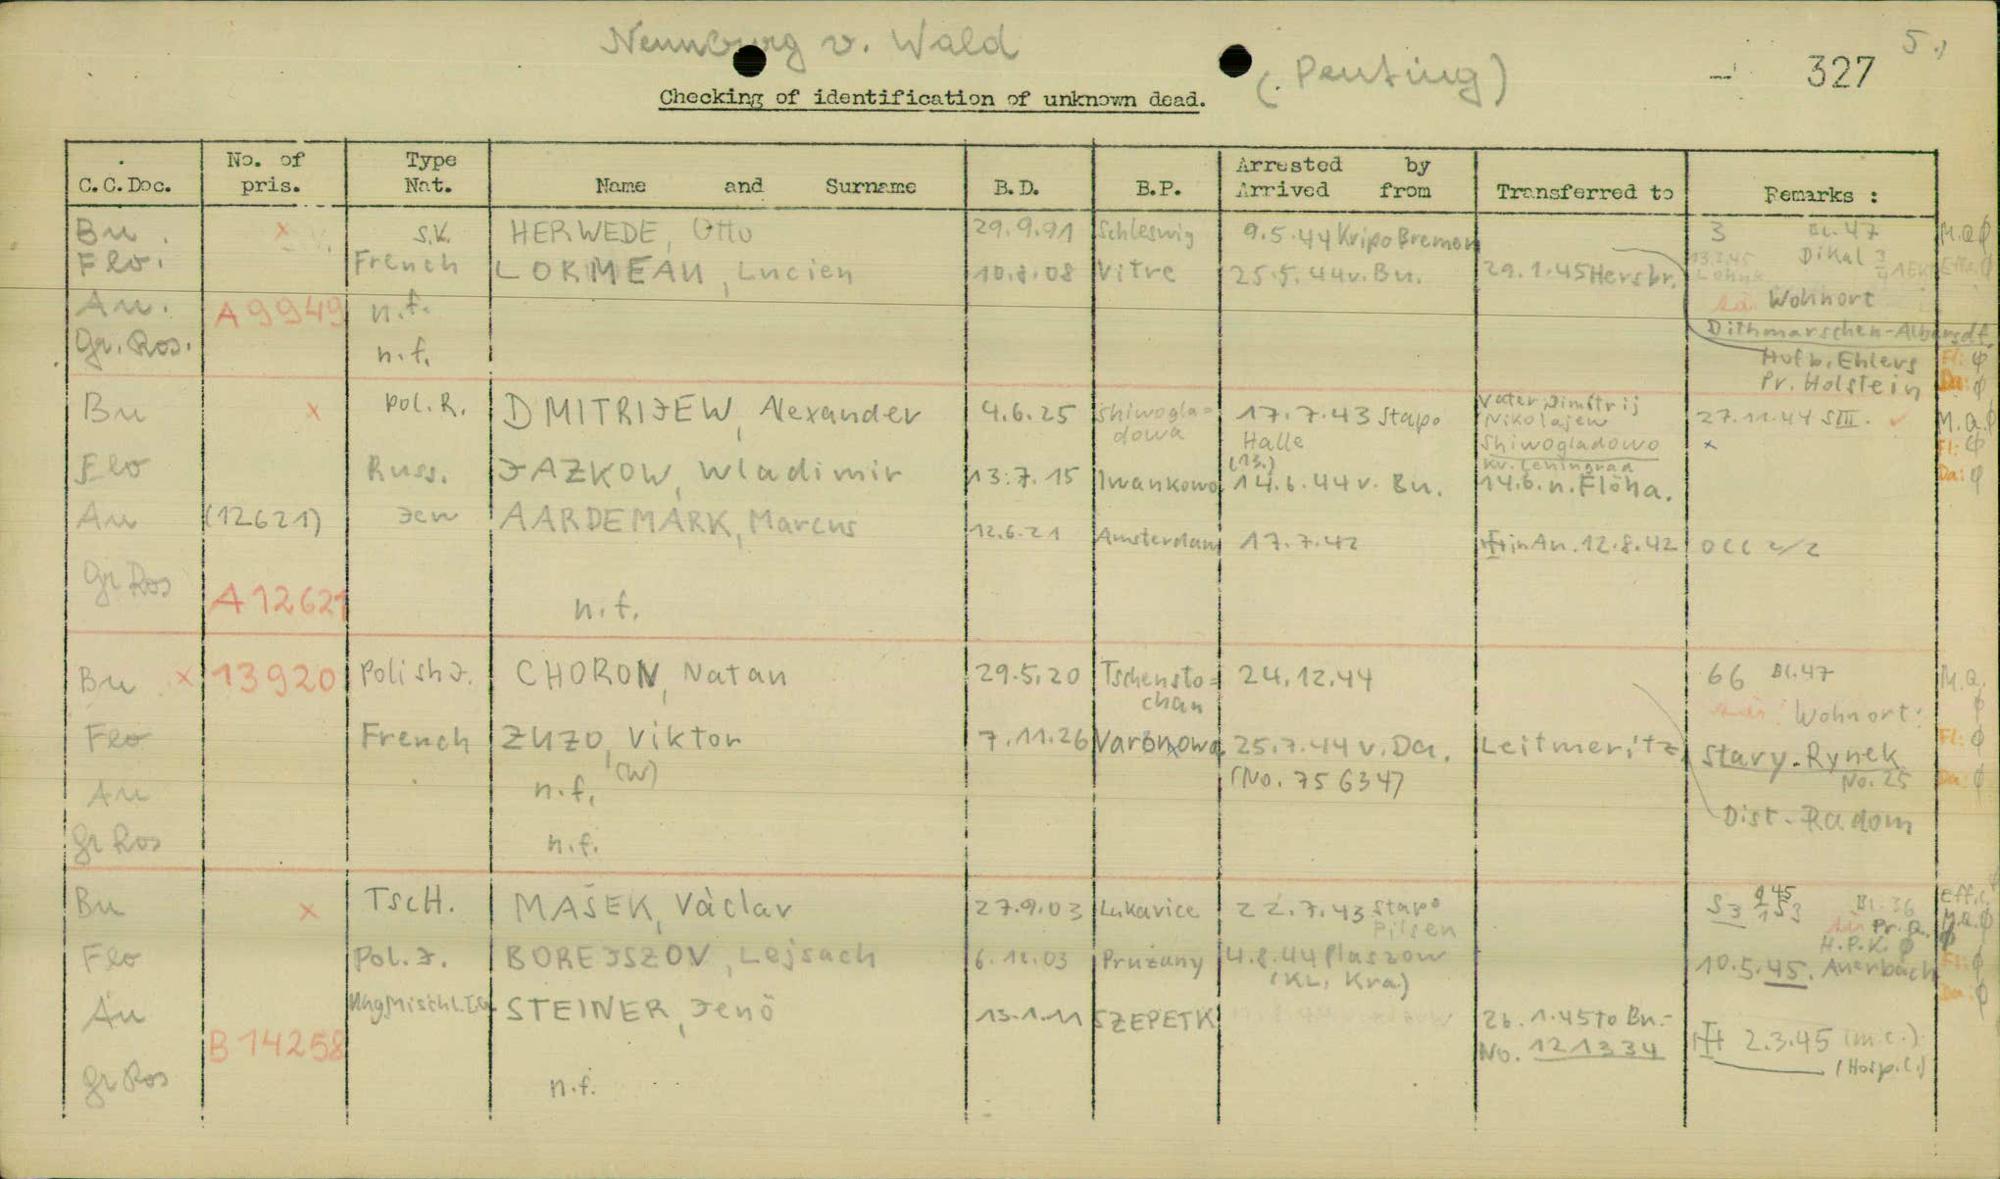 Neunburg v. Wald
(Penting)
5.)
327
Checking of identification of unknown dead.
C.C.Doc. No. of pris. Type Nat. Name and Surname B.D. B.P. Arrested by Arrived from Transferred to Remarks :
Bu x S.V. HERWEDE, Otto 29.9.91 Schleswig 9.5.44 Kripo Bremen 3 Bl. 47 M.a. ϕ
Flo. French LORMEAU, Lucien 10.8.08 Vitre 25.5.44 v. Bu. 29.1.45 Hersbr. Dikal
Au. A9949 n.f. Wohnort
Dithmarschen-Albersdf.
Gr. Ros. n.f. Hof b. Ehlers Fl: ϕ
Pr. Holstein Da: ϕ
Bu x Pol. R. DMITRIJEW, Alexander 4.6.25 Shiwogla=dowa 17.7.43 Stapo Halle Vater Dimitrij Nikolajew Shiwogladowo Kr. Leningrad 27.11.44 SIII. M.a. ϕ
x Fl: ϕ
Flo Russ. JAZKOW, Wladimir 13.7.15 Iwankowo (13.) 14.6.44 v. Bu. 14.6. n. Flöha. Da: ϕ
Au (12621) Jew AARDEMARK, Marcus 12.6.21 Amsterdam 17.7.42 in Au. 12.8.42 OCC 2/2
Gr Ros A12621 n.f.
Bu x 13920 Polish J. CHORON, Natan 29.5.20 Tschensto=chau 24.12.44 66 Bl. 47 M.a. ϕ
Wohnort:
Flo French ZUZO, Viktor 7.11.26 Varonowa 25.7.44 v. Da. Leitmeritz Stary-Rynek Fl: ϕ
(W) (No. 75634) No. 25 Da: ϕ
Au n.f. Dist-Radom
Gr Ros n.f.
Bu x TscH. MAŠEK, Vàclav 27.9.03 Lukavice 22.7.43 Stapo Pilsen 53 Bl. 36 M.a. ϕ
Pr. a.
H.P.K. ϕ
Flo Pol. J. BOREJSZOV, Lejsach 6.12.03 Pružany 4.8.44 Plaszow (KL, Kra.) 10.5.45. Auerbach Fl: ϕ
Da: ϕ
Au B 14258 STEINER, Jenö 13.1.11 SZEPETK 26.1.45 to Bu.- No. 121334 2.3.45 (m.c.) (Hosp.C.)
Gr Ros n.f.